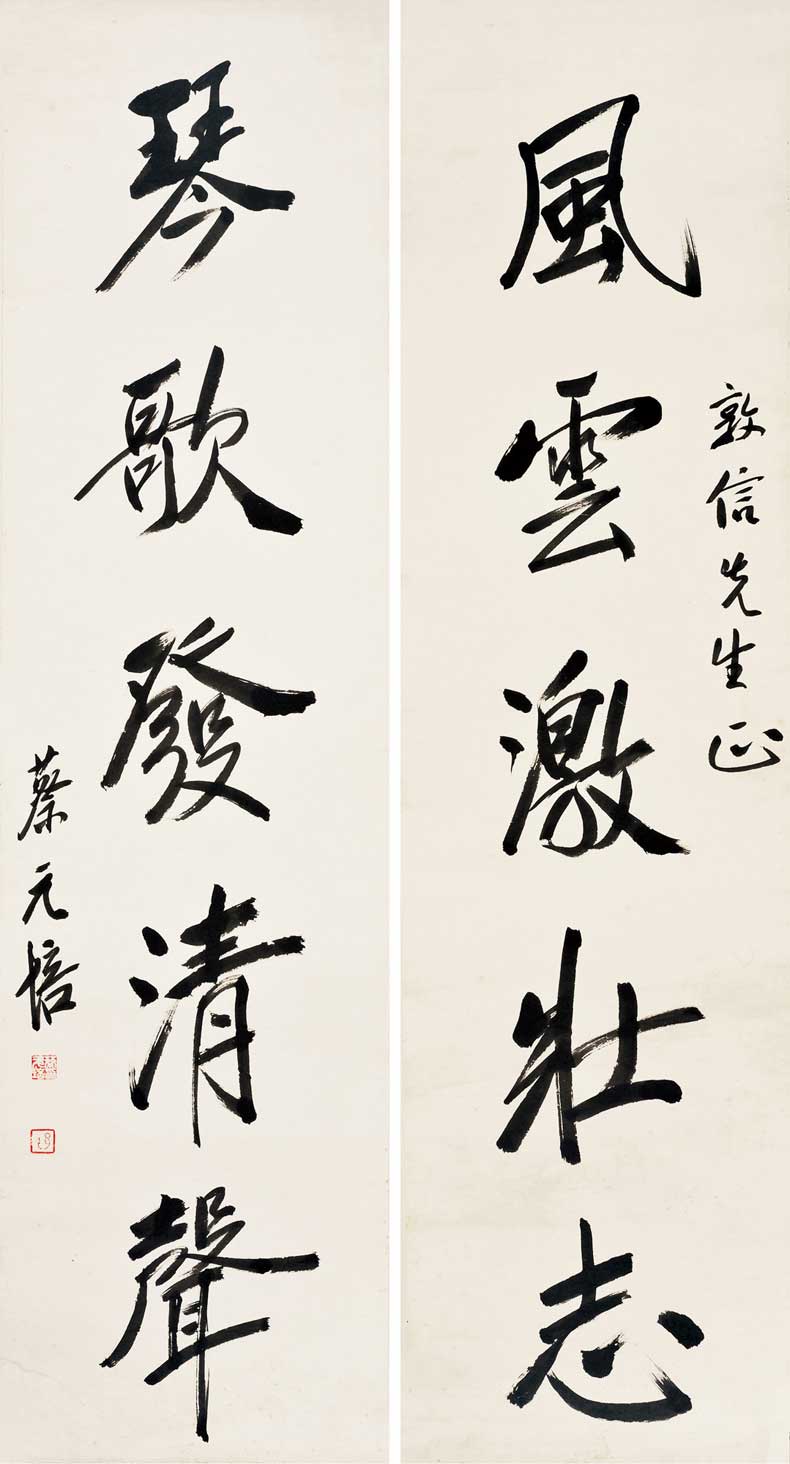 敦信先生正
風雲激壯志
琴歌發清聲
蔡元培